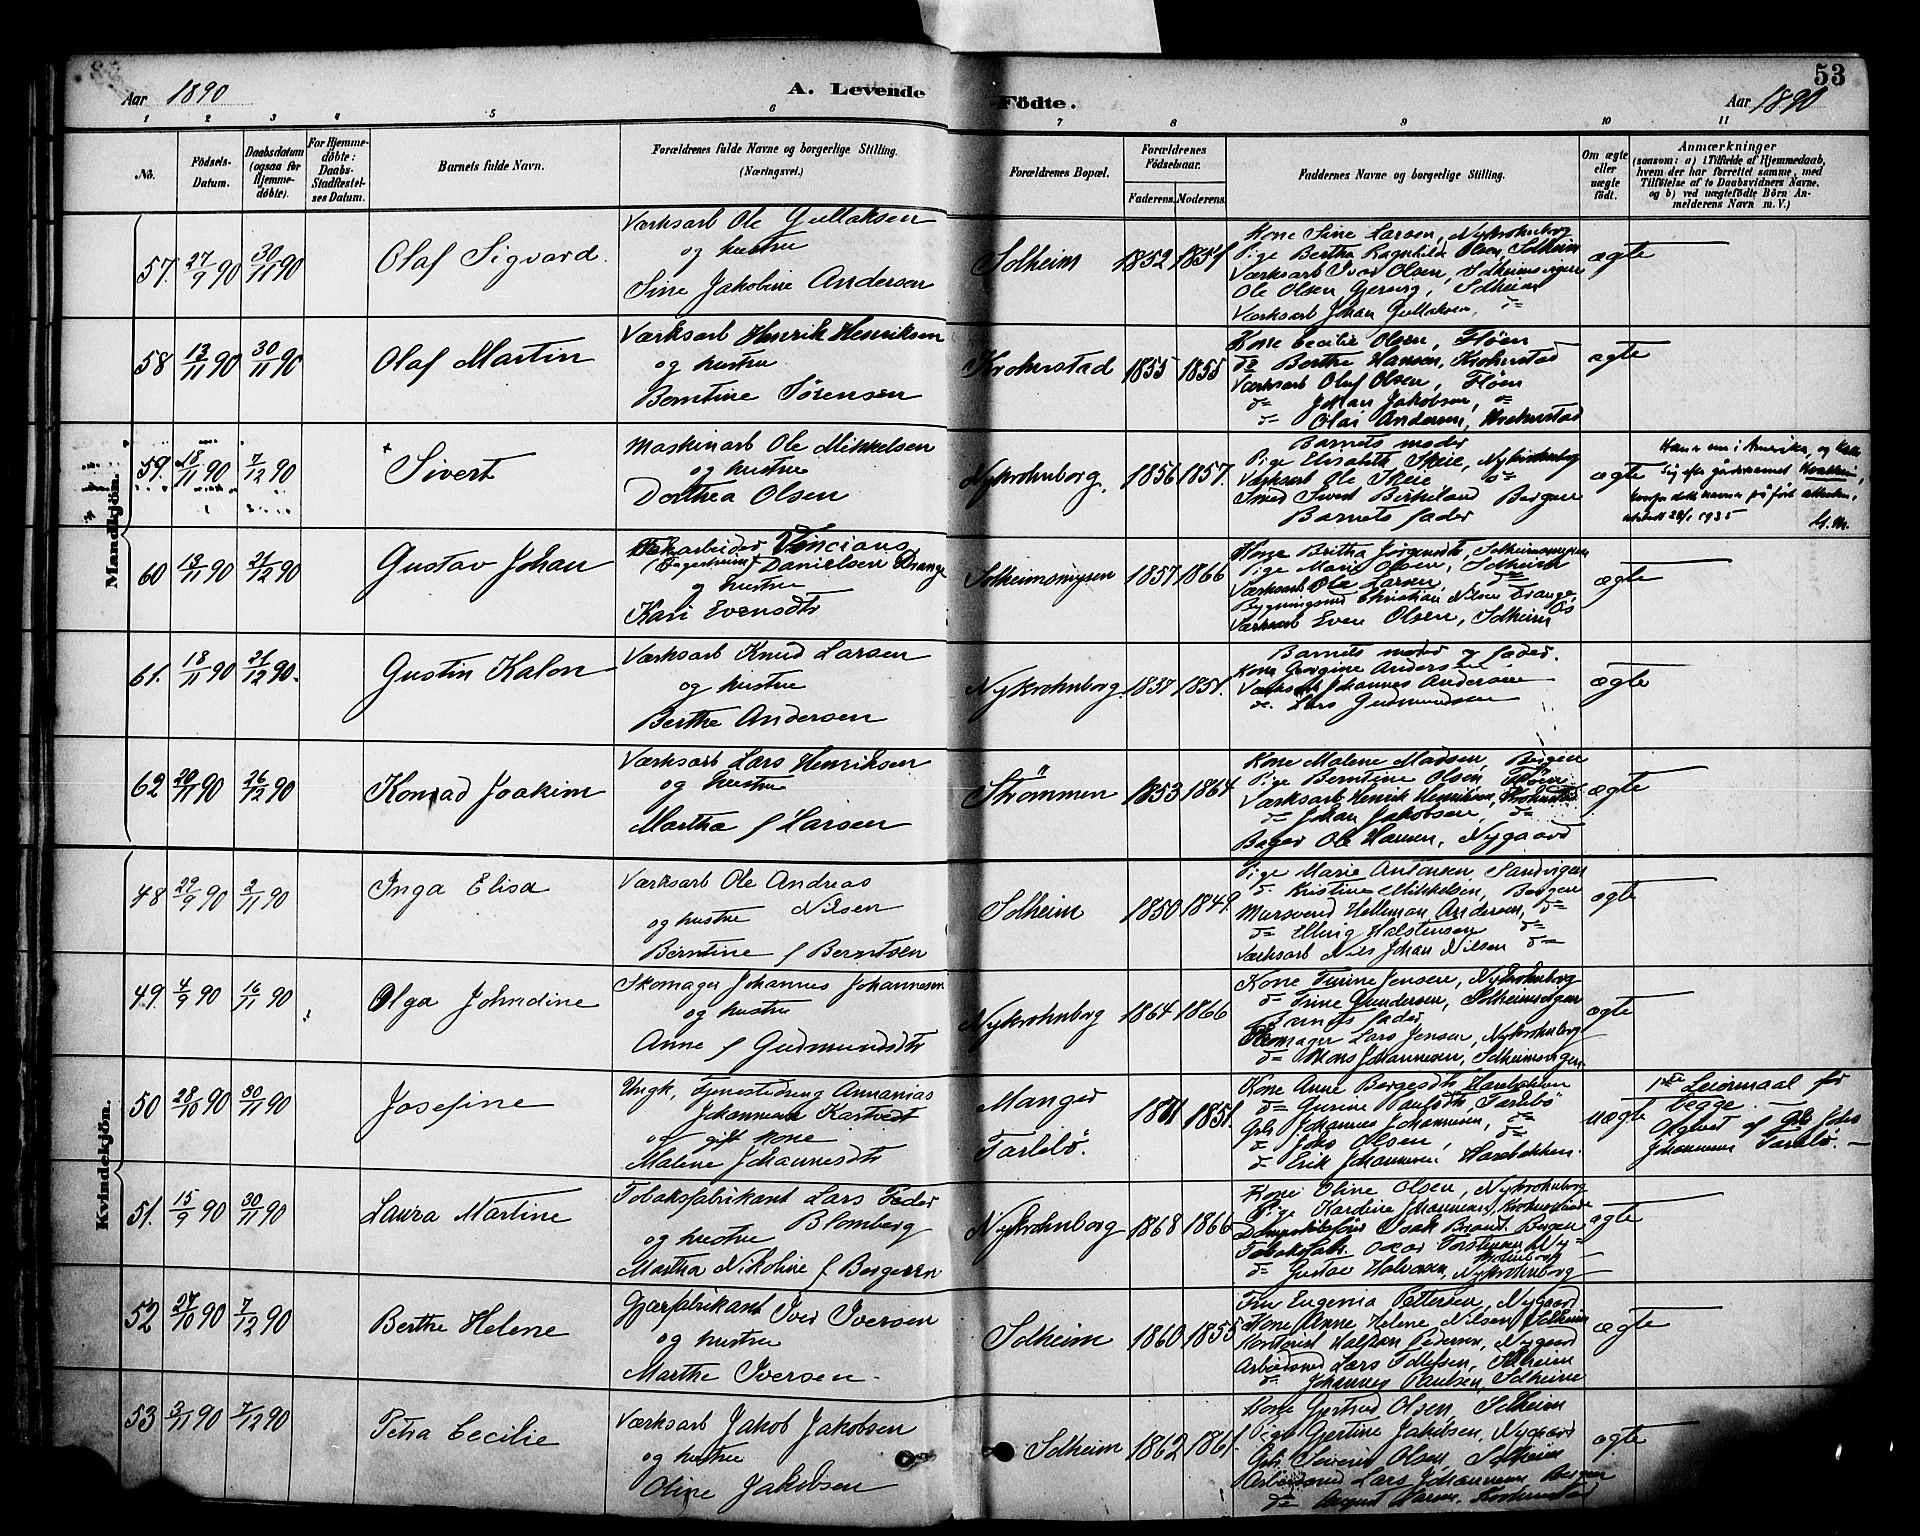 53
Aar 1890
A. Levende Födte.
Aar 1890
1 2 3 4 5 6 7 8 9 10 11
No.
Födsels-Datum.
Daabsdatum (ogsaa for Hjemmedöbte).
For Hjemmedöbte: Daabs-Stadfæstelses Datum.
Barnets fulde Navn.
Forældrenes fulde Navne og borgerlige Stilling. (Næringsvei.)
Forældrenes Bopæl.
Forældrenes Födselsaar.
Faderens. Moderens.
Faddernes Navne og borgerlige Stilling.
Om ægte eller uægte födt.
Anmærkninger (saasom: a) i Tilfælde af Hjemmedaab, hvem der har forrettet samme, med Tilföielse af to Daabsvidners Navne, og b) ved uægtefödte Börn Anmelderens Navn m. V.)
Mandkjön.
57. 27/9 90 30/11 90 Olaf Sigvard.
Værksarb Ole Gullaksen
og hustru
Sine Jakobine Andersen
Solheim 1852 1854
Kone Sine Larsen, Nykrohnborg
Pige Bertha Ragnhild Olsen, Solheim
Værksarb Ivar Olsen, Solheimsvigen
Ole Olsen Gjervig, Solheim
Værksarb Johan Gullaksen, do
ægte
58 13/11 90 30/11 90 Olaf Martin
Værksarb Henrik Henriksen
og hustru
Berntine Sörensen
Krohnstad 1855 1855
Kone Cecilie Olsen, Flöen
do Berthe Hansen, Krohnstad
Værksarb Oluf Olsen, Flöen
do Johan Jakobsen, do
do Olai Andersen, Krohnstad
ægte
59. 18/11 90 7/12 90 Sivert
Maskinarb Ole Mikkelsen
og hustru
Dorthea Olsen
Nykrohnborg. 1856 1857.
Barnets moder
Pige Elisabeth Skeie, Nykrohnborg
Værksarb Ole Skeie do
Smed Sivert Birkeland Bergen
Barnets fader
ægte
Han er nu i Amerika, og kalle
sig efter gårdsnavnet
dette navn på föd attesten,
28/1 1935
60 13/11 90 21/12 90 Gustav Johan
Fabarbeider Vincians
Danielsen Drange
og hustru
Kari Evensdtr
Solheimsmyren 1857 1866
Kone Britha Jörgensdtr, Solheimsmyren
Pige Marie Olsen, Solheim
Værksarb Ole Larsen, do
Bygningssnd Christian Nilsen Drange, Os
Værksarb Even Olsen, Solheim
ægte
61. 18/11 90 21/12 90. Gustin Kalon
Værksarb Knud Larsen
og hustru
Berthe Andersen
Nykrohnborg. 1857 1851.
Barnets moder og fader.
Kone Georgine Andersen
Værksarb Johannes Andersen
do. Lars Gudmundsen
ægte
62 20/11 90 26/12 90 Konrad Joakim
Værksarb Lars Henriksen
og hustru
Martha f Larsen
Strömmen 1853 1864
Kone Malene Madsen, Bergen
Pige Berntine Olsen, Flöen
Værksarb Henrik Henriksen, Krohnstad
do Johan Jakobsen, do
Bager Ole Hansen, Nygaard
ægte
Kvindekjön.
48 29/9 90 2/11 90 Inga Elisa
Værksarb Ole Andreas
Nilsen
og hustru
Berntine f Berntsen
Solheim 1850 1849
Pige Marie Antonsen, Sandvigen
do. Kristine Mikkelsen, Bergen
Mursvend Helleman Andersen, do
do Elling Halstensen do
Værksarb Nils Johan Nilsen do
ægte
49. 4/9 90 16/11 90 Olga Johndine
Skomager Johannes Johannesen
og hustru
Anne f Gudmundsdtr
Nykrohnborg 1864 1866
Kone Turine Jensen, Nykrohnborg
do Trine Gundersen, Solheimsvigen
Barnets fader,
Skomager Lars Jensen, Nykrohnborg
do Mons Johannesen, Solheimsvigen
ægte
50 28/10 90 30/11 90 Josefine
Ungk, Tjenestedreng Annanias
Johannesen Kartveit
og gift kone
Malene Johannesdtr
Manger
Tarlebö. 1871 1851.
Kone Anne Börgesdtr, Harebakken
do Gurine Paulsdtr, Tarlebö
Gbr Johannes Johannesen, do
do Johs Olsen, do
do Erik Johannesen Harebakken.
uægte
1ste Leiermaal for
begge.
Opgivet af Gbr Johs
Johannesen Tarlebö.
51. 15/9 90 30/11 90 Laura Martine
Tobaksfabrikant Lars Peder
Blomberg
og hustru
Martha Nikoline f Børgesen
Nykrohnborg 1868 1866
Kone Oline Olsen, Nykrohnborg
Pige Kardine Johannesen, Krohnstad
Dampskibsförer Isak Brandt. Bergen
Tobaksfabr. Oscar Torstensen, Ny-
krohnborg
do Gustav Halvorsen, Nykrohnborg
ægte
52 27/10 90 7/12 90 Berthe Helene
Gjærfabrikant Iver Iversen
og hustru
Marthe Iversen
Solheim 1860 1855
Fru Eugenia Pettersen, Nygaard
Kone Anne Helene Nilsen, Solheim
Kontorist Halfdan Pedersen, Nygaard
Arbeidsmd Lars Tollefsen, Solheim
do. Johannes Paulsen, Solheim
ægte
53 3/11 90 7/12 90 Petra Cecilie
Værksarb Jakob Jakobsen
og hustru
Oline Jakobsen
Solheim 1862 1861.
Kone Gertrud Olsen, Solheim
Pige Gertine Jakobsen, Nygaard
Gbr. Severin Olsen, Solheim
Arbeidsmd Lars Johannesen Bergen
do August Larsen. Krohnstad
ægte